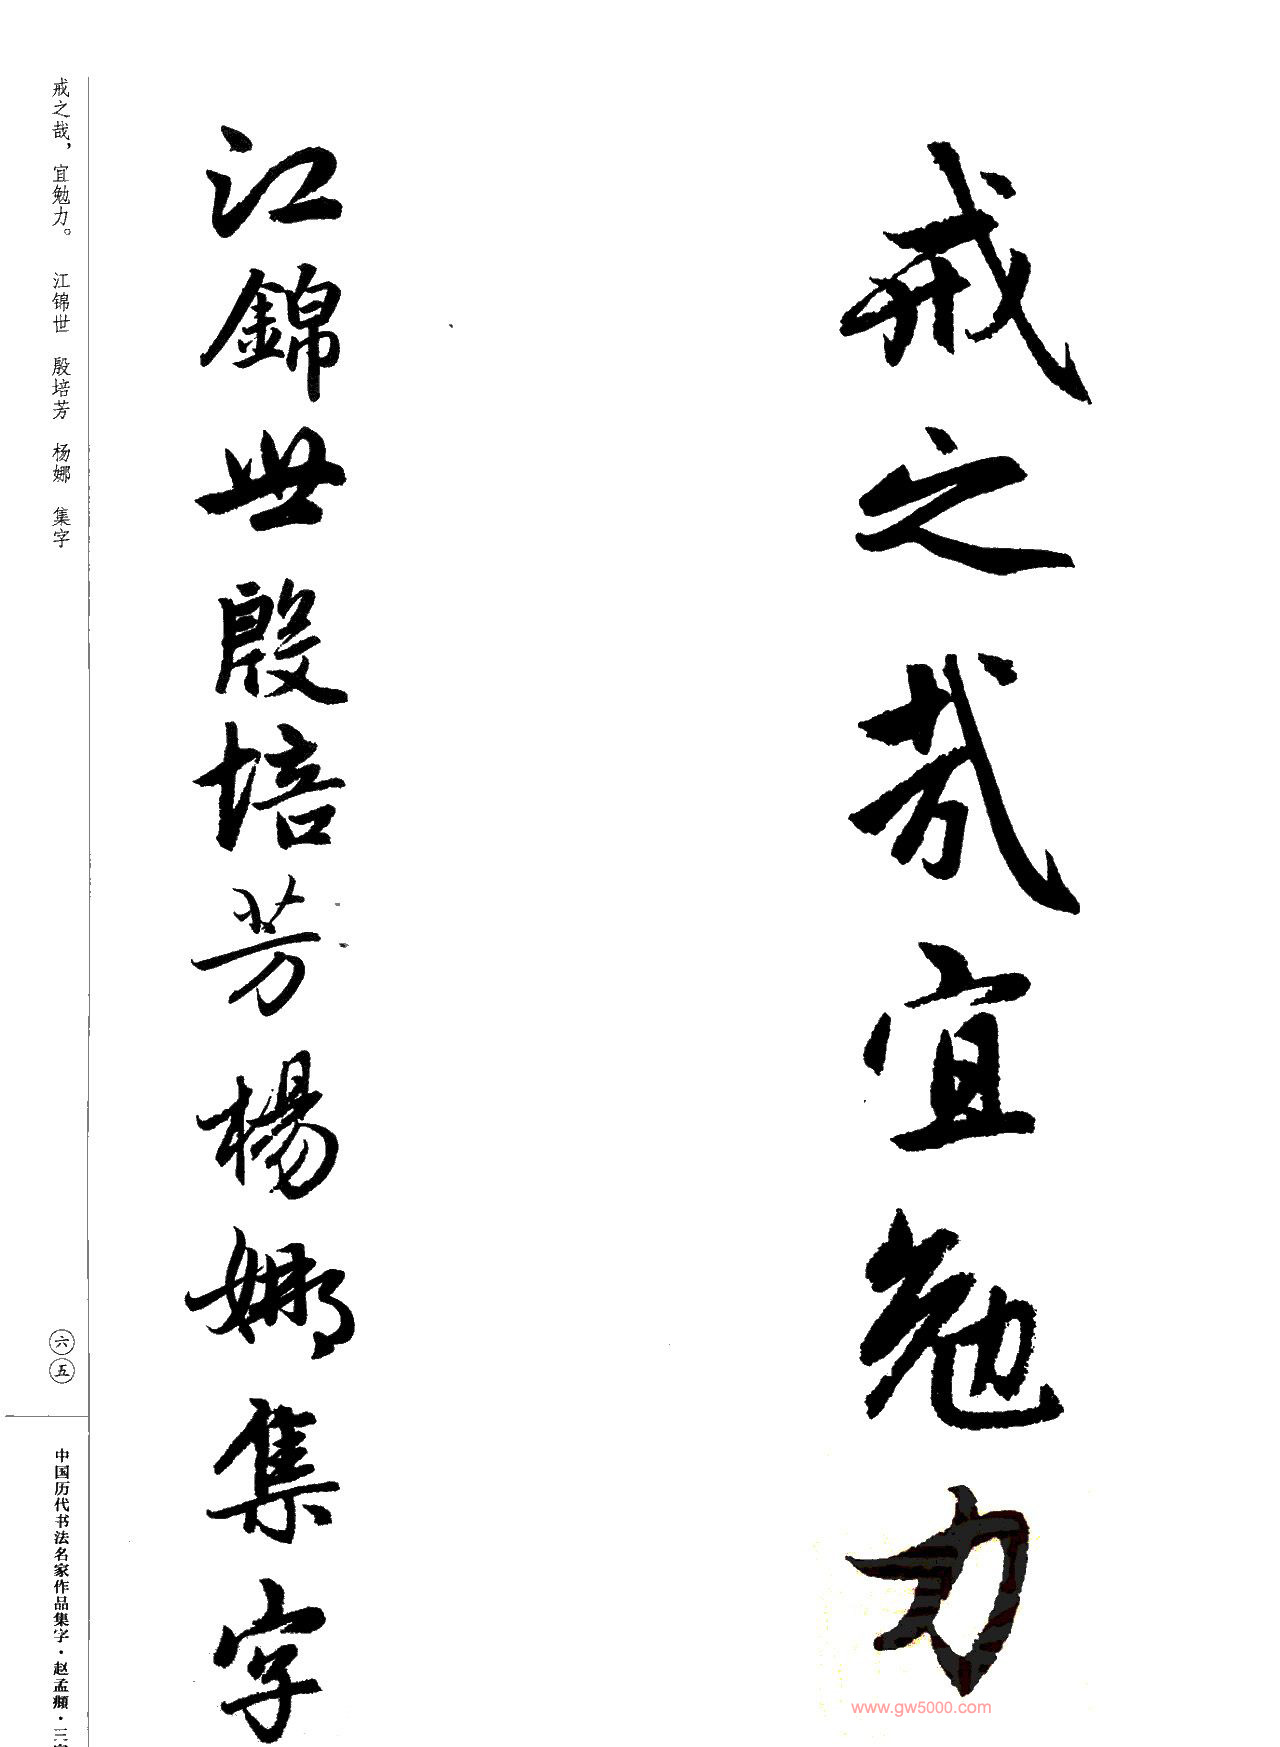 戒之哉宜勉力
江錦世殷培芳楊娜集字
戒之哉，宜勉力。 江锦世 殷培芳 杨娜 集字
六五
中国历代书法名家作品集字·赵孟頫·三
www.gw5000.com